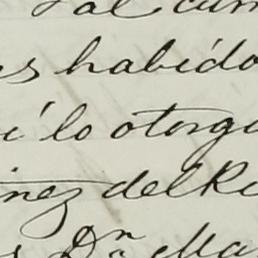 al cum
s habido
í lo otorgo
inez del Ri
Dn Ma